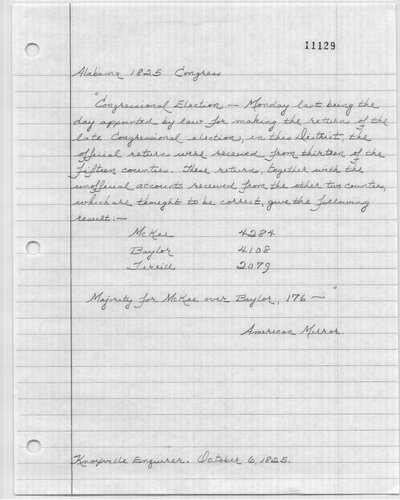 11129
Alabama 1825 Congress
"Congressional Election — Monday last being the
day appointed by law for making the returns of the
late Congressional election, in this District, the
official returns were received from thirteen of the
Fifteen counties. These returns, together with the
unofficial accounts received from the other two counties,
which are thought to be correct, give the following
result:—
McKee 4284
Baylor 4108
Terrill 2079
Majority for McKee over Baylor, 176 — "
American Mirror.
Knoxville Enquirer. October 6, 1825.